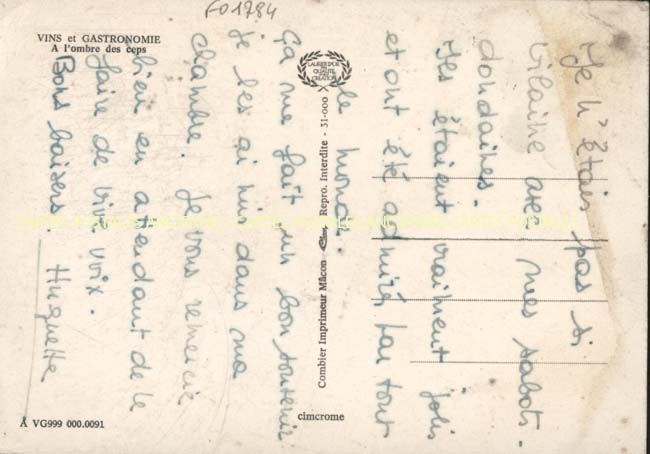 FO1784
VINS et GASTRONOMIE
A l'ombre des ceps
LAURIER D'OR
DE LA
QUALITÉ
CRÉATION
Combier Imprimeur Mâcon - Repro. Interdite - 31-000 X
cimcrome
A VG999 000.0091
Je n'étais pas si
vilaine avec mes sabots.
dondaines.
Ils étaient vraiment jolis
et ont été admiré par tout
le monde.
ça me fait un bon souvenir
je les ai mis dans ma
chambre. Je vous remercie
bien en attendant de le
faire de vive voix.
Bons baisers
Huguette